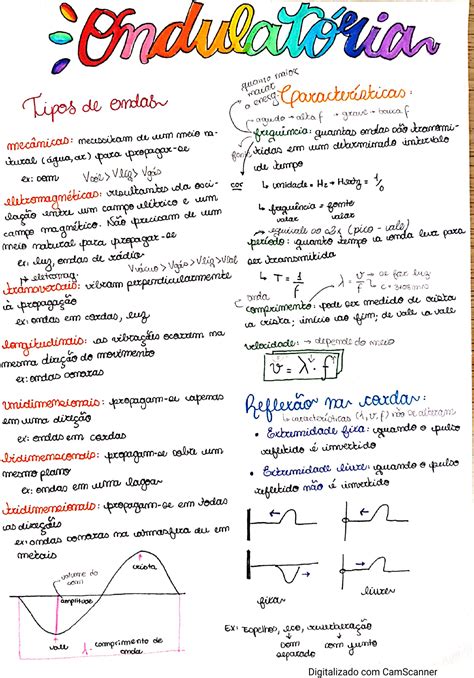 Ondulatória
Tipos de ondas
mecânicas: necessitam de um meio na-
tural (água, ar) para propagar-se
ex: som Vsól > Vlíq > Vgás
eletromagnéticas: resultantes da osci-
lação entre um campo elétrico e um
campo magnético. Não precisam de um
meio natural para propagar-se
ex: luz, ondas de rádio
Vvácuo > Vgás > Vlíq > Vsól
↳ eletromag.
transversais: vibram perpendicularmente
à propagação
ex: ondas em cordas, luz
longitudinais: as vibrações ocorrem na
mesma direção do movimento
ex: ondas sonoras
unidimensionais: propagam-se apenas
em uma direção
ex: ondas em cordas
bidimensionais: propagam-se sobre um
mesmo plano
ex: ondas em uma lagoa
tridimensionais: propagam-se em todas
as direções
ex: ondas sonoras na atmosfera ou em
metais
crista
volume do
som
amplitude
vale
λ
comprimento de
onda
quanto maior
maior
a energ.
Características:
agudo → alta f → grave → baixa f
frequência: quantas ondas são transmi-
fonte
tidas em um determinado intervalo
de tempo
cor
↳ unidade = Hz
↳ frequência = fonte
valor valor
→ equivale ao 2x (pico - vale)
período: quanto tempo a onda leva para
ser transmitida
↳ T = 1/f
λ = v/f → se for luz
onda
comprimento: pode ser medido de crista
a crista; início ao fim; de vale a vale
velocidade: → depende do meio
v = λ · f
Reflexão na corda:
↳ características (λ, v, f) não se alteram
• Extremidade fixa: quando o pulso
refletido é invertido
• Extremidade livre: quando o pulso
refletido não é invertido
fixa
livre
Ex: Espelhos, eco, reverberação
som
separado
som junto
Digitalizado com CamScanner